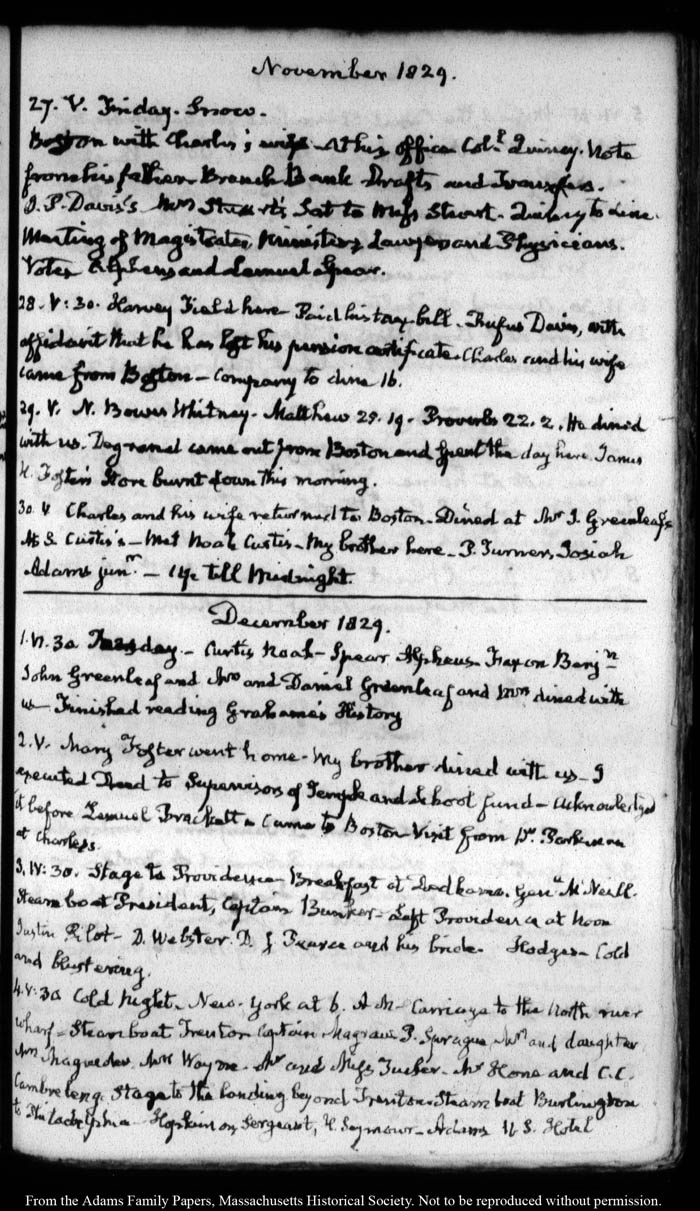 November 1829.
27. V. Friday. Snow.
Boston with Charles's wife At his office Col.l Quincy. Note
from his father Branch Bank Drafts and Transfers.
J. P. Davis's Mrs Stuart's Sat to Miss Stuart. Quincy to dine.
Meeting of Magistrates Ministers Lawyers and Physicians.
Votes Alpheus and Lemuel Spear.
28. V:30. Harvey Field here Paid his tax bill. Rufus Davis, with
affidavit that he has lost his pension certificate. Charles and his wife
came from Boston — Company to dine 16.
29. V. N. Bowes Whitney. Matthew 25. 19. Proverbs 22. 2. He dined
with us. Degrand came out from Boston and spent the day here James
H. Foster's Store burnt down this morning.
30. V Charles and his wife returned to Boston. Dined at Mr. J. Greenleaf's
At S. Curtis's — Met Noah Curtis. My brother here. P. Turner, Josiah
Adams junr. — till Midnight.
December 1829.
1. VI. 30 Tuesday. — Curtis Noah — Spear Alpheus — Faxon Benjn
John Greenleaf and Mrs and Daniel Greenleaf and Mrs dined with
us — Finished reading Grahame's History
2. V. Mary Foster went home. My brother dined with us — I
executed Deed to Supervisors of Temple and School fund — acknowledged
it before Lemuel Brackett — Came to Boston Visit from Dr. Parkman
at Charles's.
3. IV:30. Stage to Providence Breakfast at Dedham. Genl McNeill.
Steam boat President, Captain Bunker — Left Providence at Noon
Pilot — D. Webster. D. J. Pearce and his bride. Hodges — Cold
and blustering.
4. V:30 Cold Night. New-York at 6. A M — Carriage to the North river
wharf — Steamboat Trenton Captain P. Sprague Mrs and daughter
Mrs Mrs Wayne. Mr and Miss Tucker. Mr Hone and C. C.
Cambreleng. Stage to the landing beyond Trenton Steam boat Burlington
to Philadelphia — Hopkinson, Sergeant, H. Seymour — Adams U. S. Hotel
From the Adams Family Papers, Massachusetts Historical Society. Not to be reproduced without permission.